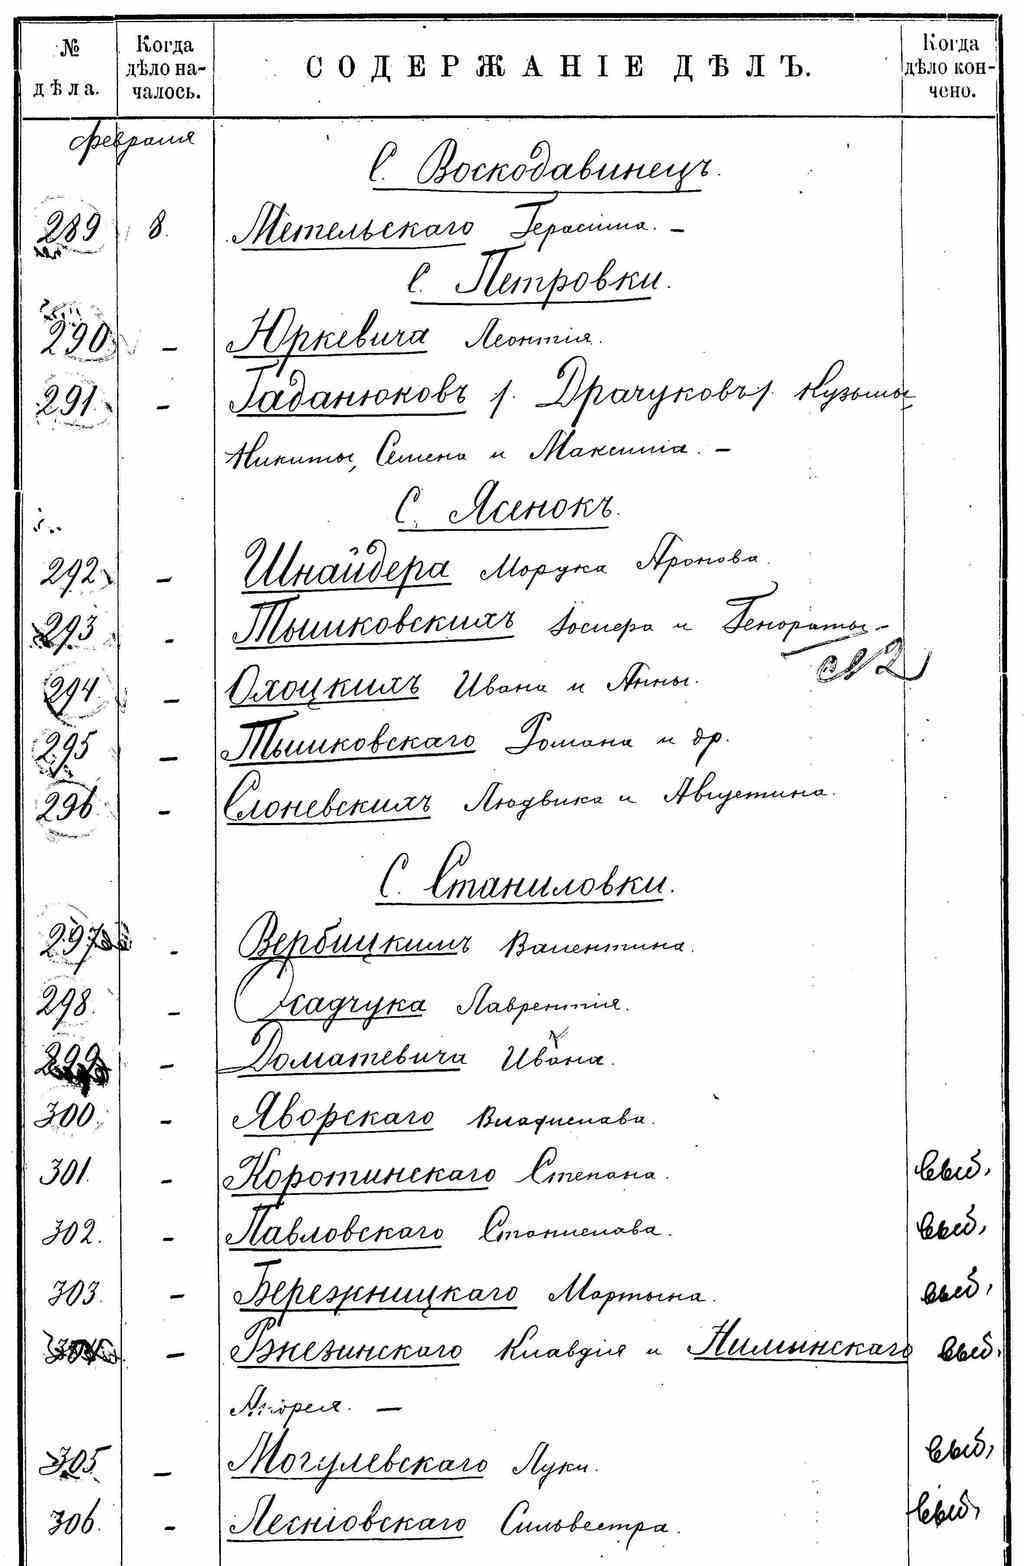 № дѣла. Когда дѣло на- чалось. СОДЕРЖАНІЕ ДѢЛЪ. Когда дѣло кон- чено.
февраля
С. Воскодавинецъ.
289 8. Метельскаго Герасима. —
С. Петровки.
290 — Юркевича Леонтія.
291 — Гаданюковъ /. Драчуковъ/. Кузьмы,
Никиты, Семена и Максима. —
С. Ясенокъ.
292 — Шнайдера Морука Аронова.
293 — Тышковскихъ и
№2
294 — Охоцкихъ Ивана и Анны.
295 — Тышковскаго Романа и др.
296 — Слоневскихъ Людвика и Августина.
С. Станиловки.
297 - Вербицкимъ Валентина.
298 — Осадчука Лаврентія.
299 — Доматевича Ивана.
300 — Яворскаго Владислава.
301. — Коротинскаго Степана. выб.
302. — Павловскаго Станислава. выб.
303. — Бережницкаго Мартына. выб.
304 — Ржезинскаго Клавдія и Нилинскаго выб.
Андрея. —
305 — Могулевскаго Луки. выб.
306. — Лесніовскаго Сильвестра. выб.